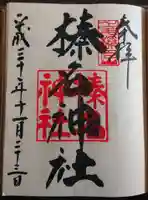 奉拝
榛名神社
榛名神社
平成三十年十一月二十三日